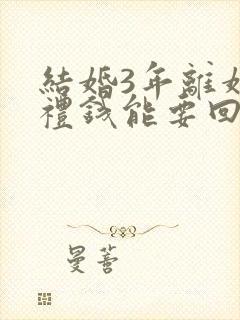 結婚3年離
禮錢能要回
曼蓍